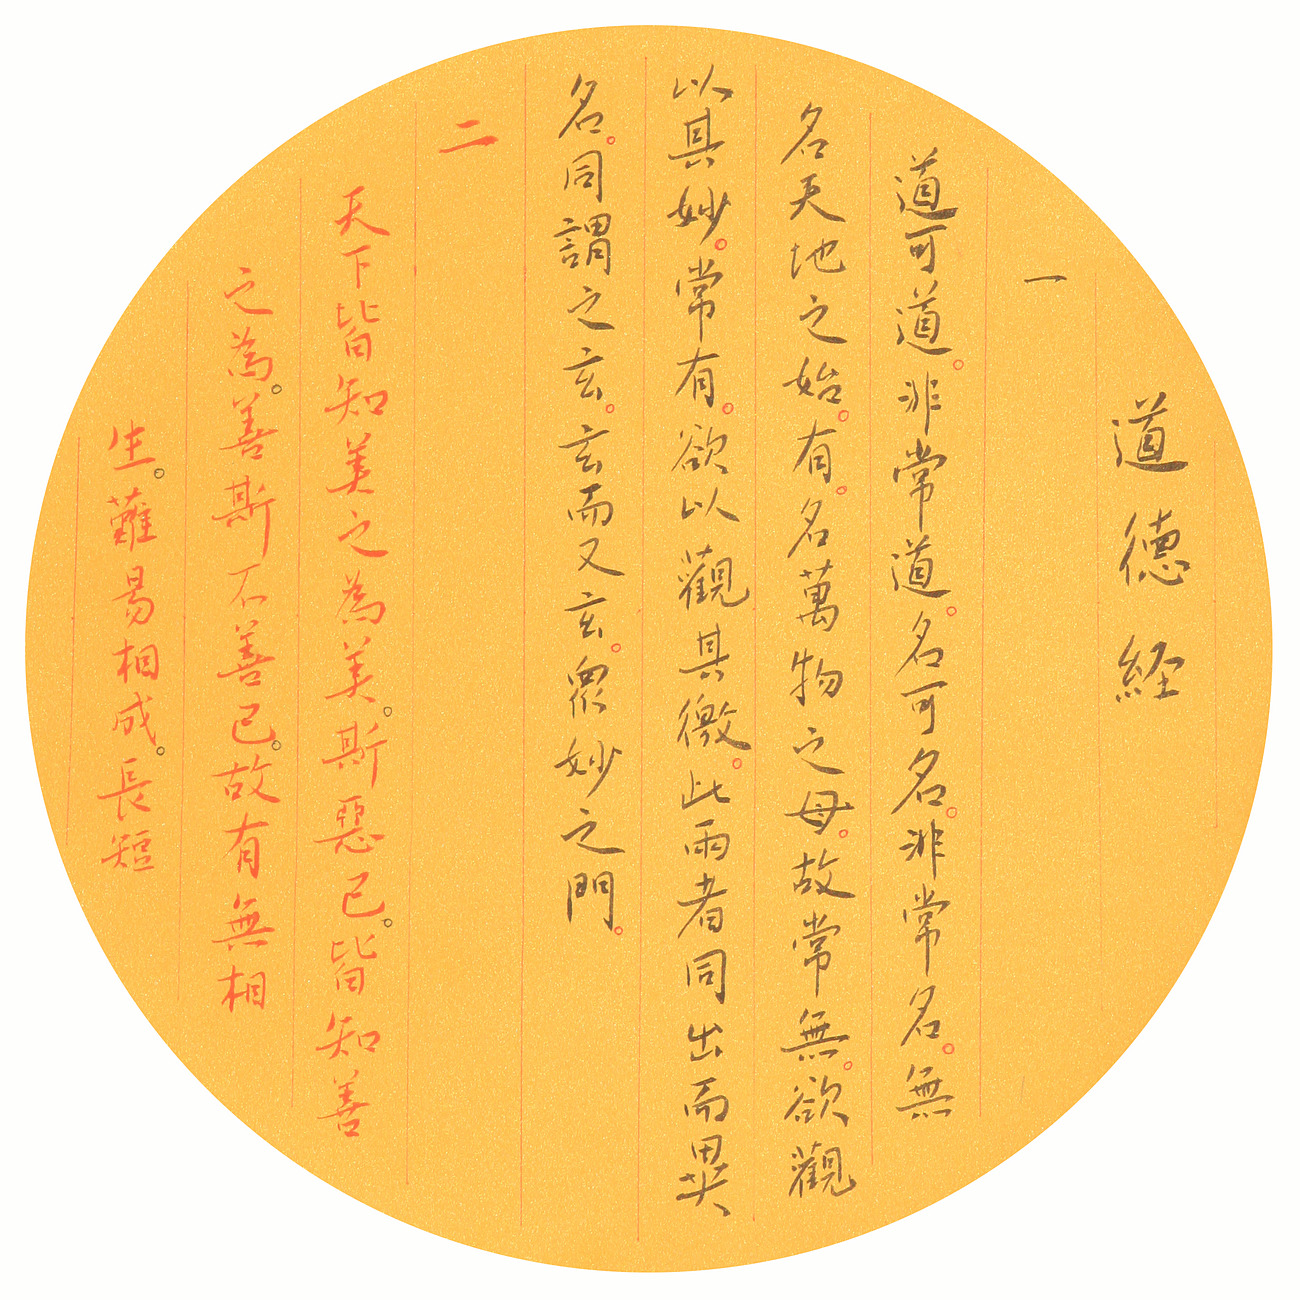 道德经
一
道可道。非常道。名可名。非常名。無
名天地之始。有。名萬物之母。故常無。欲觀
以其妙。常有。欲以觀其徼。此兩者同出而異
名。同謂之玄。玄而又玄。眾妙之門。
二
天下皆知美之為美。斯惡已。皆知善
之為。善斯不善已。故有無相
生。難易相成。長短